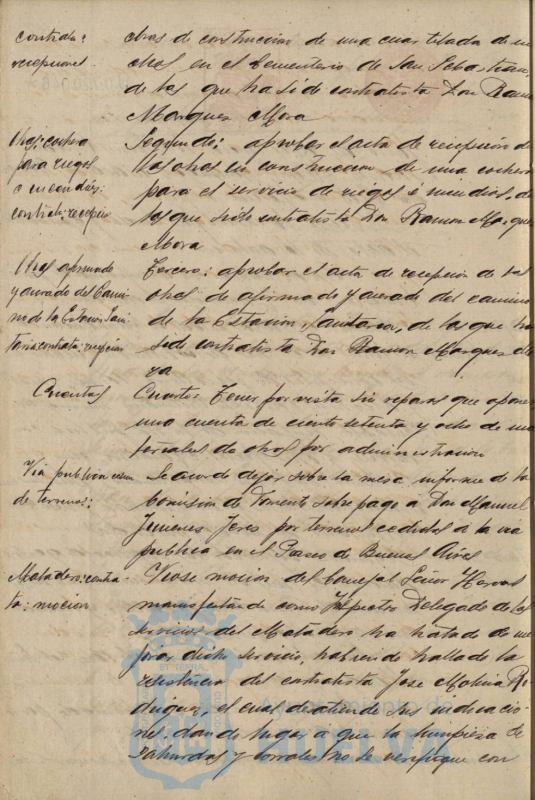 contrata:
recepciones.
obras de construccion de una cuartelada de ni
chos en el Cementerio de San Sebastian,
de las que ha sido contratista Don Ramon
Marquez Mora
Obras: cochera
para riegos
é incendios:
contrata: recepción
Segundo: aprobar el acta de recepción de
las obras en construccion de una cochera
para el servicio de riegos é incendios, de
las que sido contratista Don Ramon Marquez
Mora
Obras afirmado
y acerado del Cami
no de la Estacion Sani
taria: contrata: recepcion
Tercero: aprobar el acta de recepción de las
obras de afirmado y acerado del camino
de la Estacion Sanitaria, de las que ha
sido contratista Don Ramon Marquez Mo
ra
Cuentas
Cuarto: Tener por vista sin reparos que oponer
una cuenta de ciento setenta y ocho de ma
teriales de obras por administracion
Via publica
de terrenos:
Se acordó dejar sobre la mesa informe de la
Comisión de Fomento sobre pago a Don Manuel
Jimenez Jerez por terrenos cedidos a la via
publica en el Paseo de Buenos Aires
Matadero: contra-
ta: mocion
Viose mocion del Concejal Señor
manifestando como Inspector Delegado de los
servicios del Matadero ha tratado de me
jorar dicho servicio, habiendo hallado la
resistencia del contratista Jose Molina Ro
driguez, el cual desatiende sus indicacio
nes, dando lugar a que la limpieza de
zahurdas y corrales no se verifique con
Ayuntamiento de
HUELVA